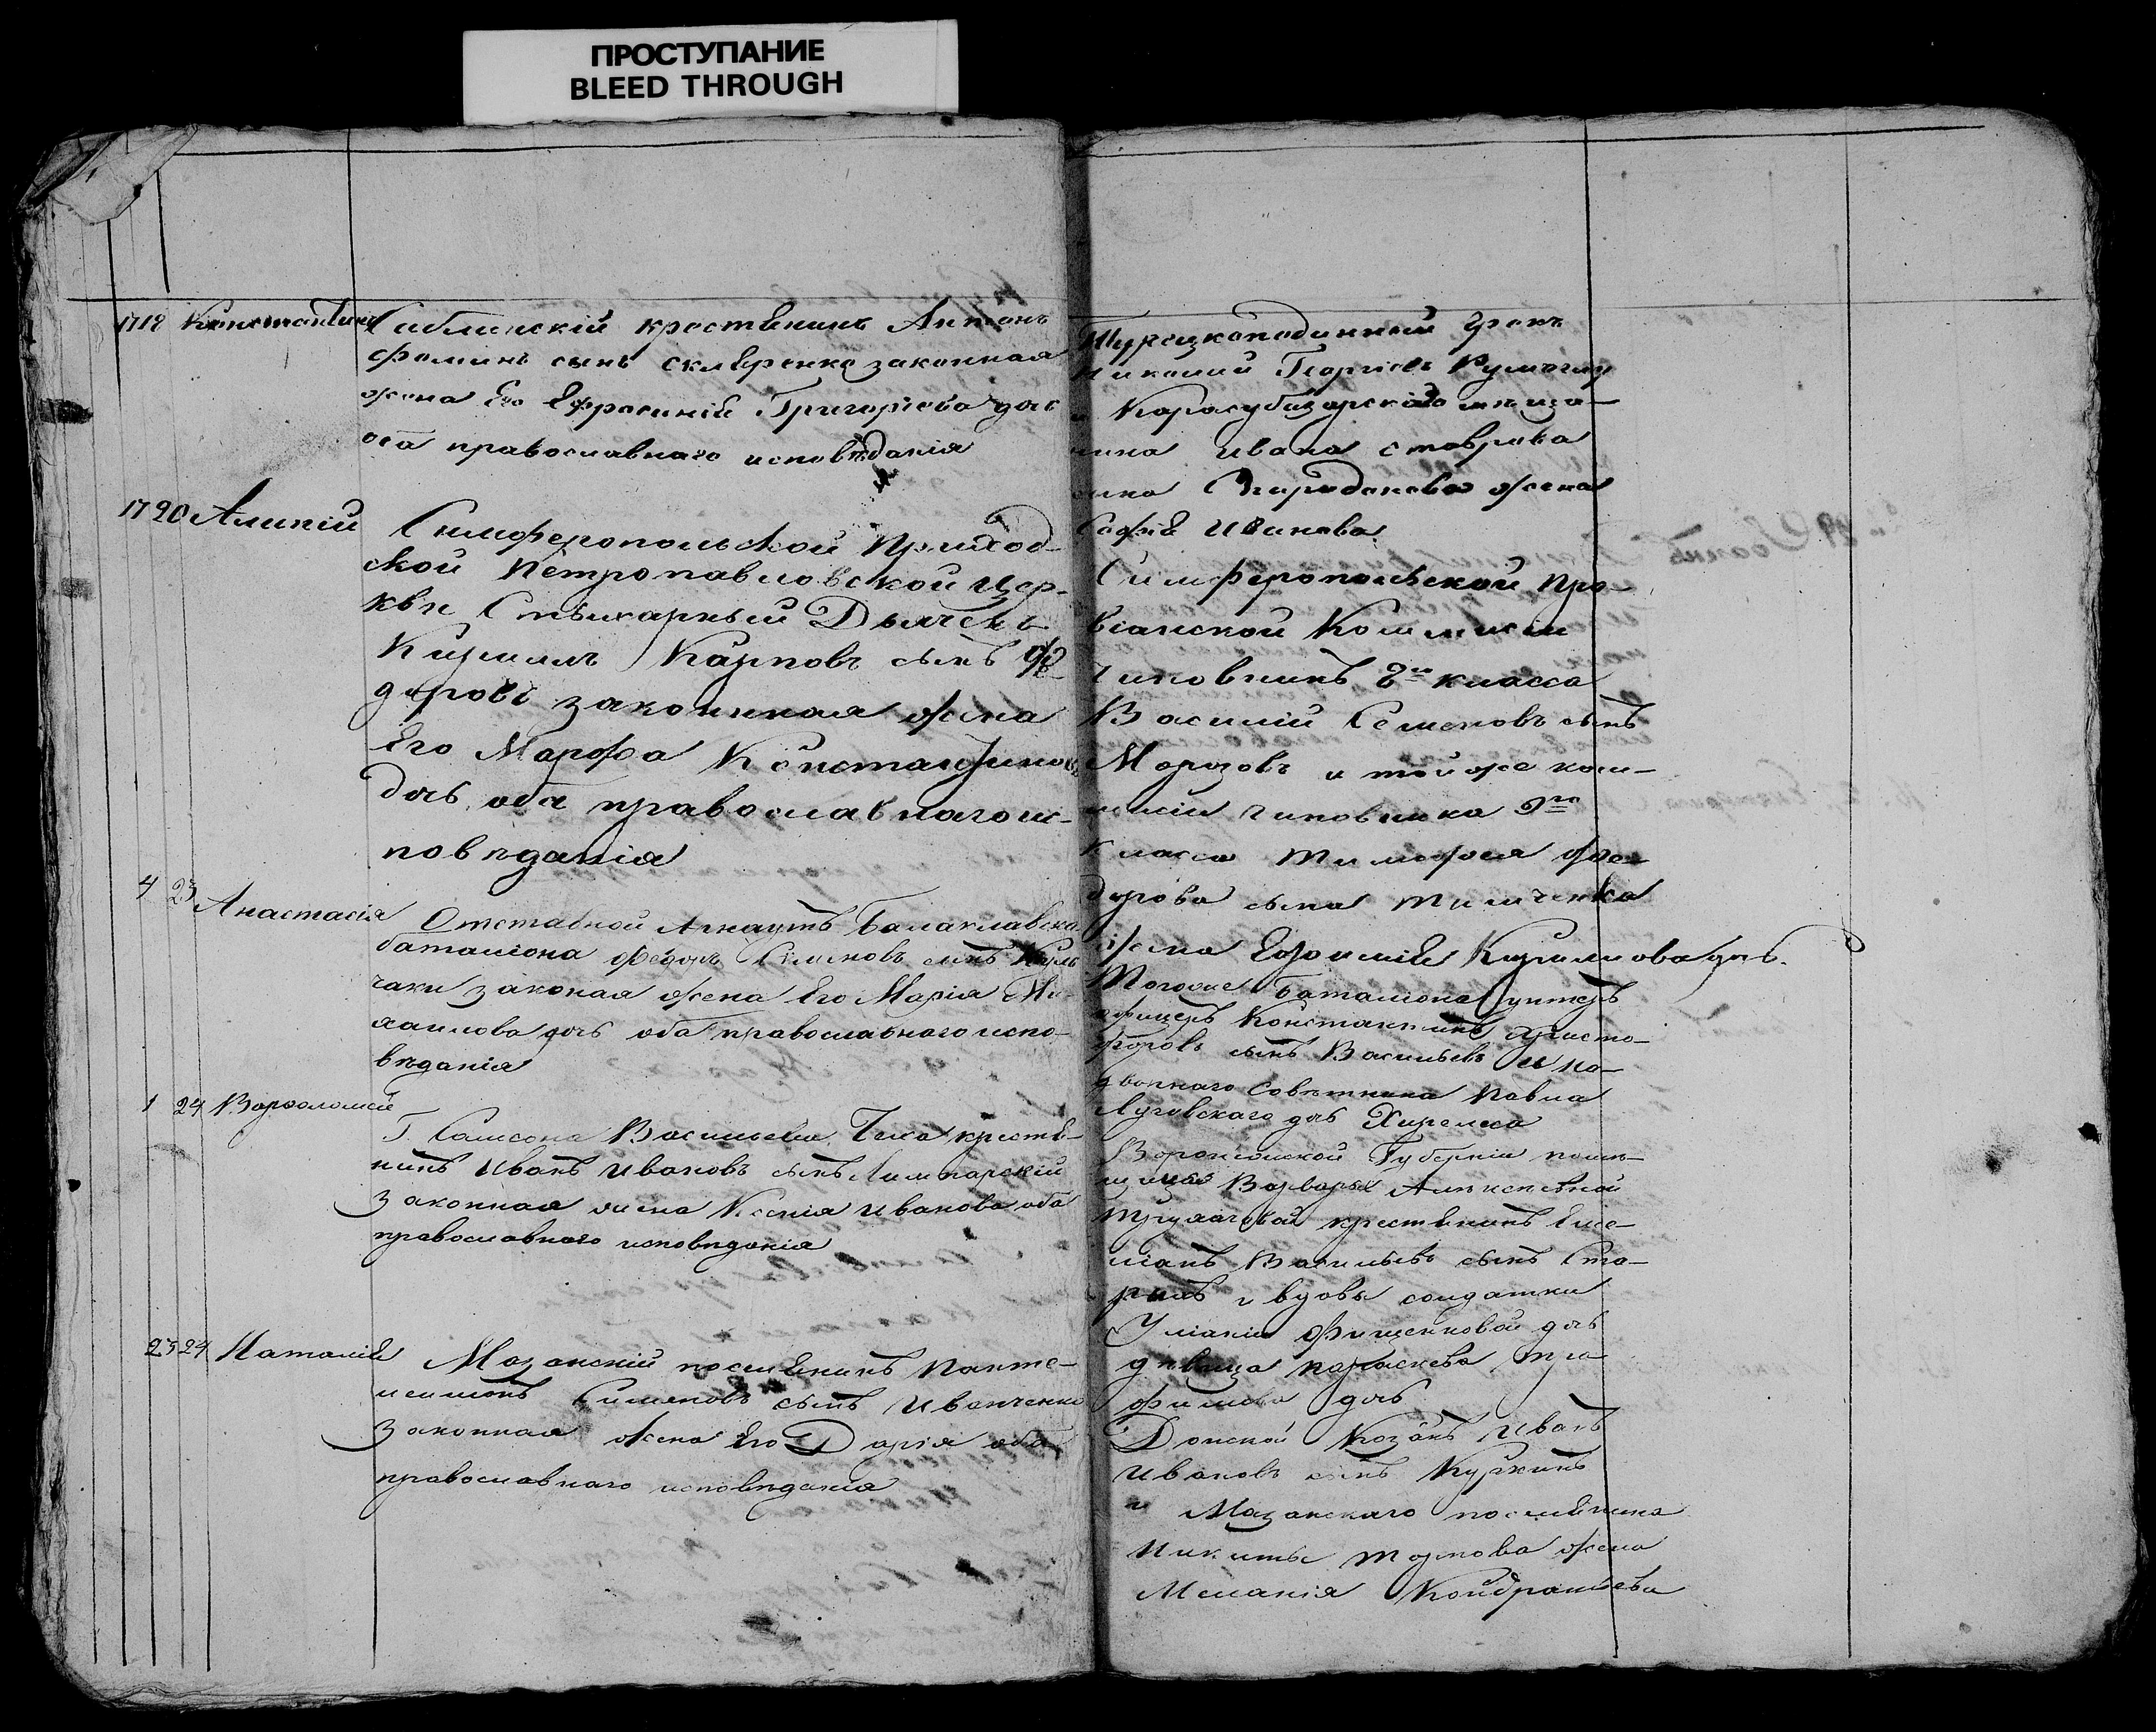 ПРОСТУПАНИЕ
BLEED THROUGH
17 18 Константинъ
Саблинскій крестьянинъ Антонъ
Фоминъ сынъ законная
жена Его Ефросинія Григорьева дочь
оба православнаго исповѣданія
17 20 Алипій
Симферопольской приход-
ской Петропавловской Цер-
кви Стихарный Дьячекъ
Кирилъ Карповъ сынъ Фе-
доровъ законная жена
Его Марфа Константинова
дочь оба православнаго ис-
повѣданія
4 23 Анастасія
Отставной Арнаутъ Балаклавскаго
баталіона Федоръ сынъ
законая жена Его Марія Ми-
хаилова дочь оба православнаго испо-
вѣданія
1 24 Варфоломей
Г. Самсона Васильева крестья-
нинъ Иванъ Ивановъ сынъ
законная жена Ксенія Иванова оба
православнаго исповѣданія
23 24 Наталія
Мазанскій поселянинъ Панте-
леимонъ Симеоновъ сынъ Иванченко
законная жена Его Дарія оба
православнаго исповѣданія
Турецкоподинный Грекъ
Николай Георгіевъ
и Карасубазарскаго мѣща-
нина Ивана Ставрова
сына жена
Софія Иванова
Симферопольской Про-
віанской Коммисіи
чиновникъ 8го класса
Василій Семеновъ сынъ
Морозовъ и той же ком-
мисіи чиновника 9го
класса Тимофея Фео-
дорова сына Тимченка
жена Ефимія Кирилова дочь.
Тогоже баталіона унтеръ
офицеръ Константинъ Христо-
форовъ сынъ Васильевъ и на-
дворнаго Совѣтника Павла
Луговскаго дочь
Воронежской Губерніи помѣ-
щицы Варвары Алексѣевой
крестьянинъ Еме-
ліанъ Васильевъ сынъ Ста-
рикъ и вдовы солдатки
Уліаніи дочь
дѣвица Параскева Тро-
фимова дочь
Донской Козакъ Иванъ
Ивановъ сынъ
и Мазанскаго поселянина
Никиты жена
Меланія Кондратіева